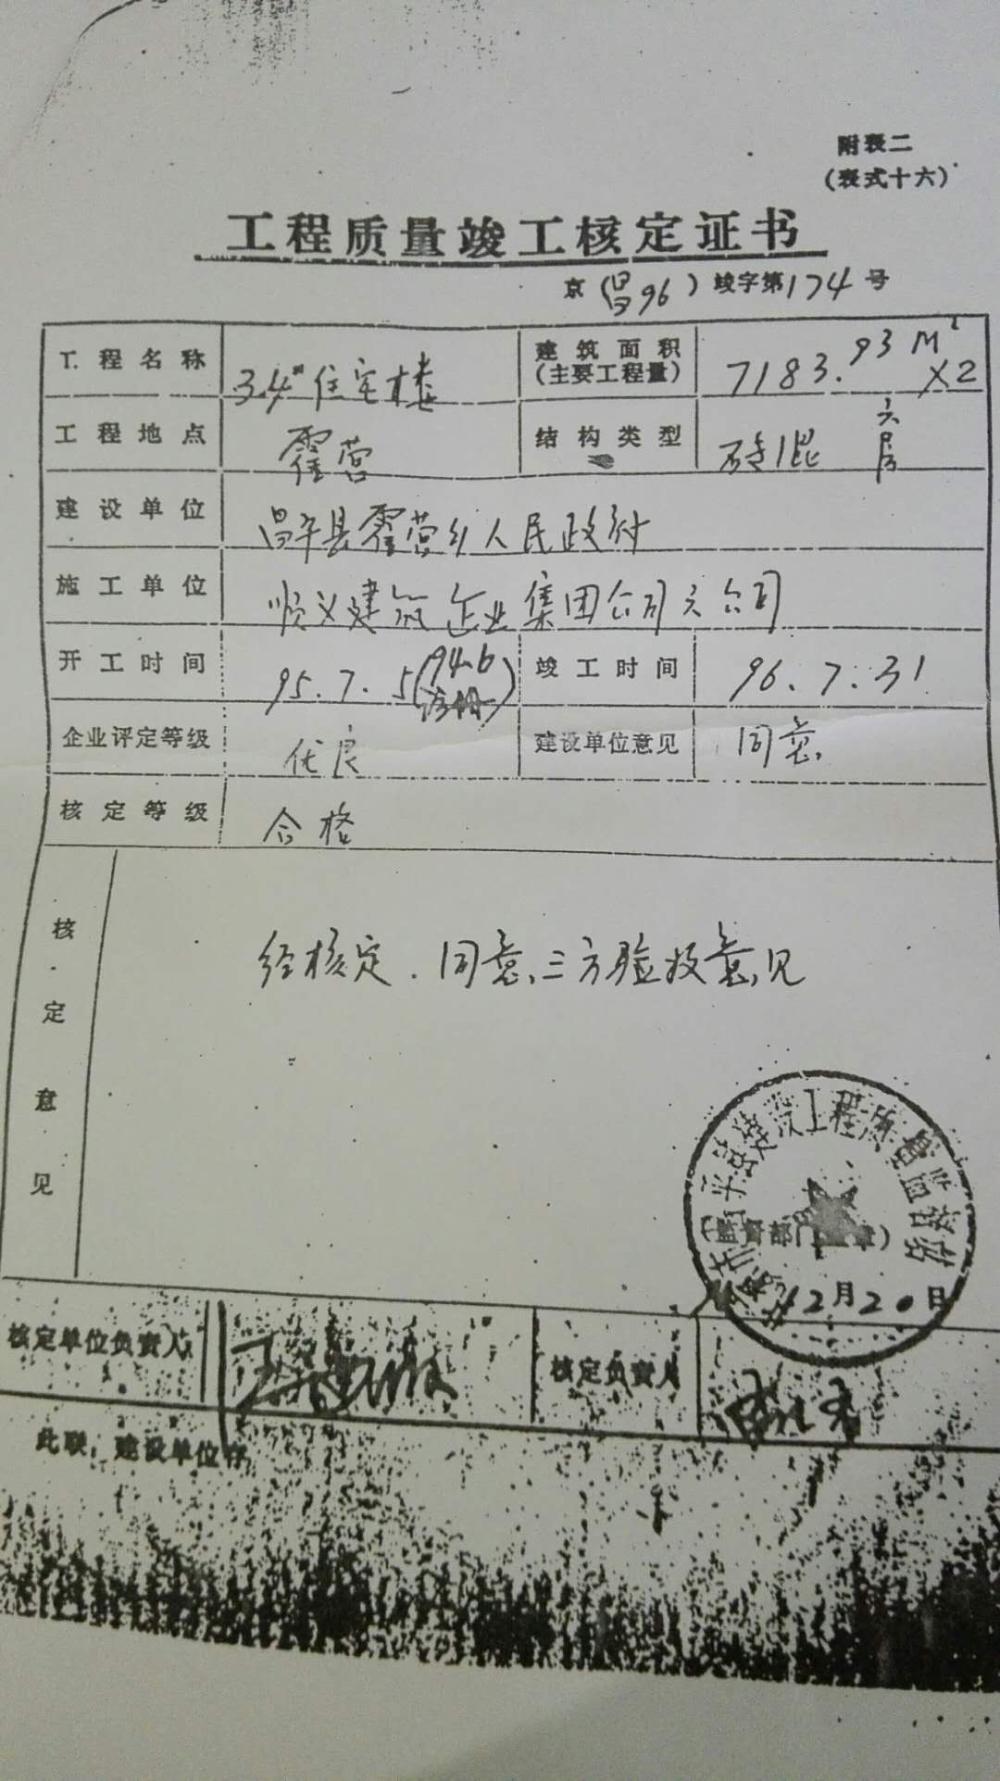 附表二
(表式十六)
工程质量竣工核定证书
京(昌96)竣字第174号
工程名称 3.4#住宅楼 建筑面积(主要工程量) 7183.93M²X2
工程地点 霍营 结构类型 砖混 六层
建设单位 昌平县霍营乡人民政府
施工单位 顺义建筑企业集团公司六公司
开工时间 95.7.5(94.6 竣工时间 96.7.31
企业评定等级 优良 建设单位意见 同意
核定等级 合格
核定意见 经核定.同意三方验收意见
北京市昌平县建设工程质量监督站
(监督部门盖章)
12月20日
核定单位负责人 核定负责人
此联:建设单位存